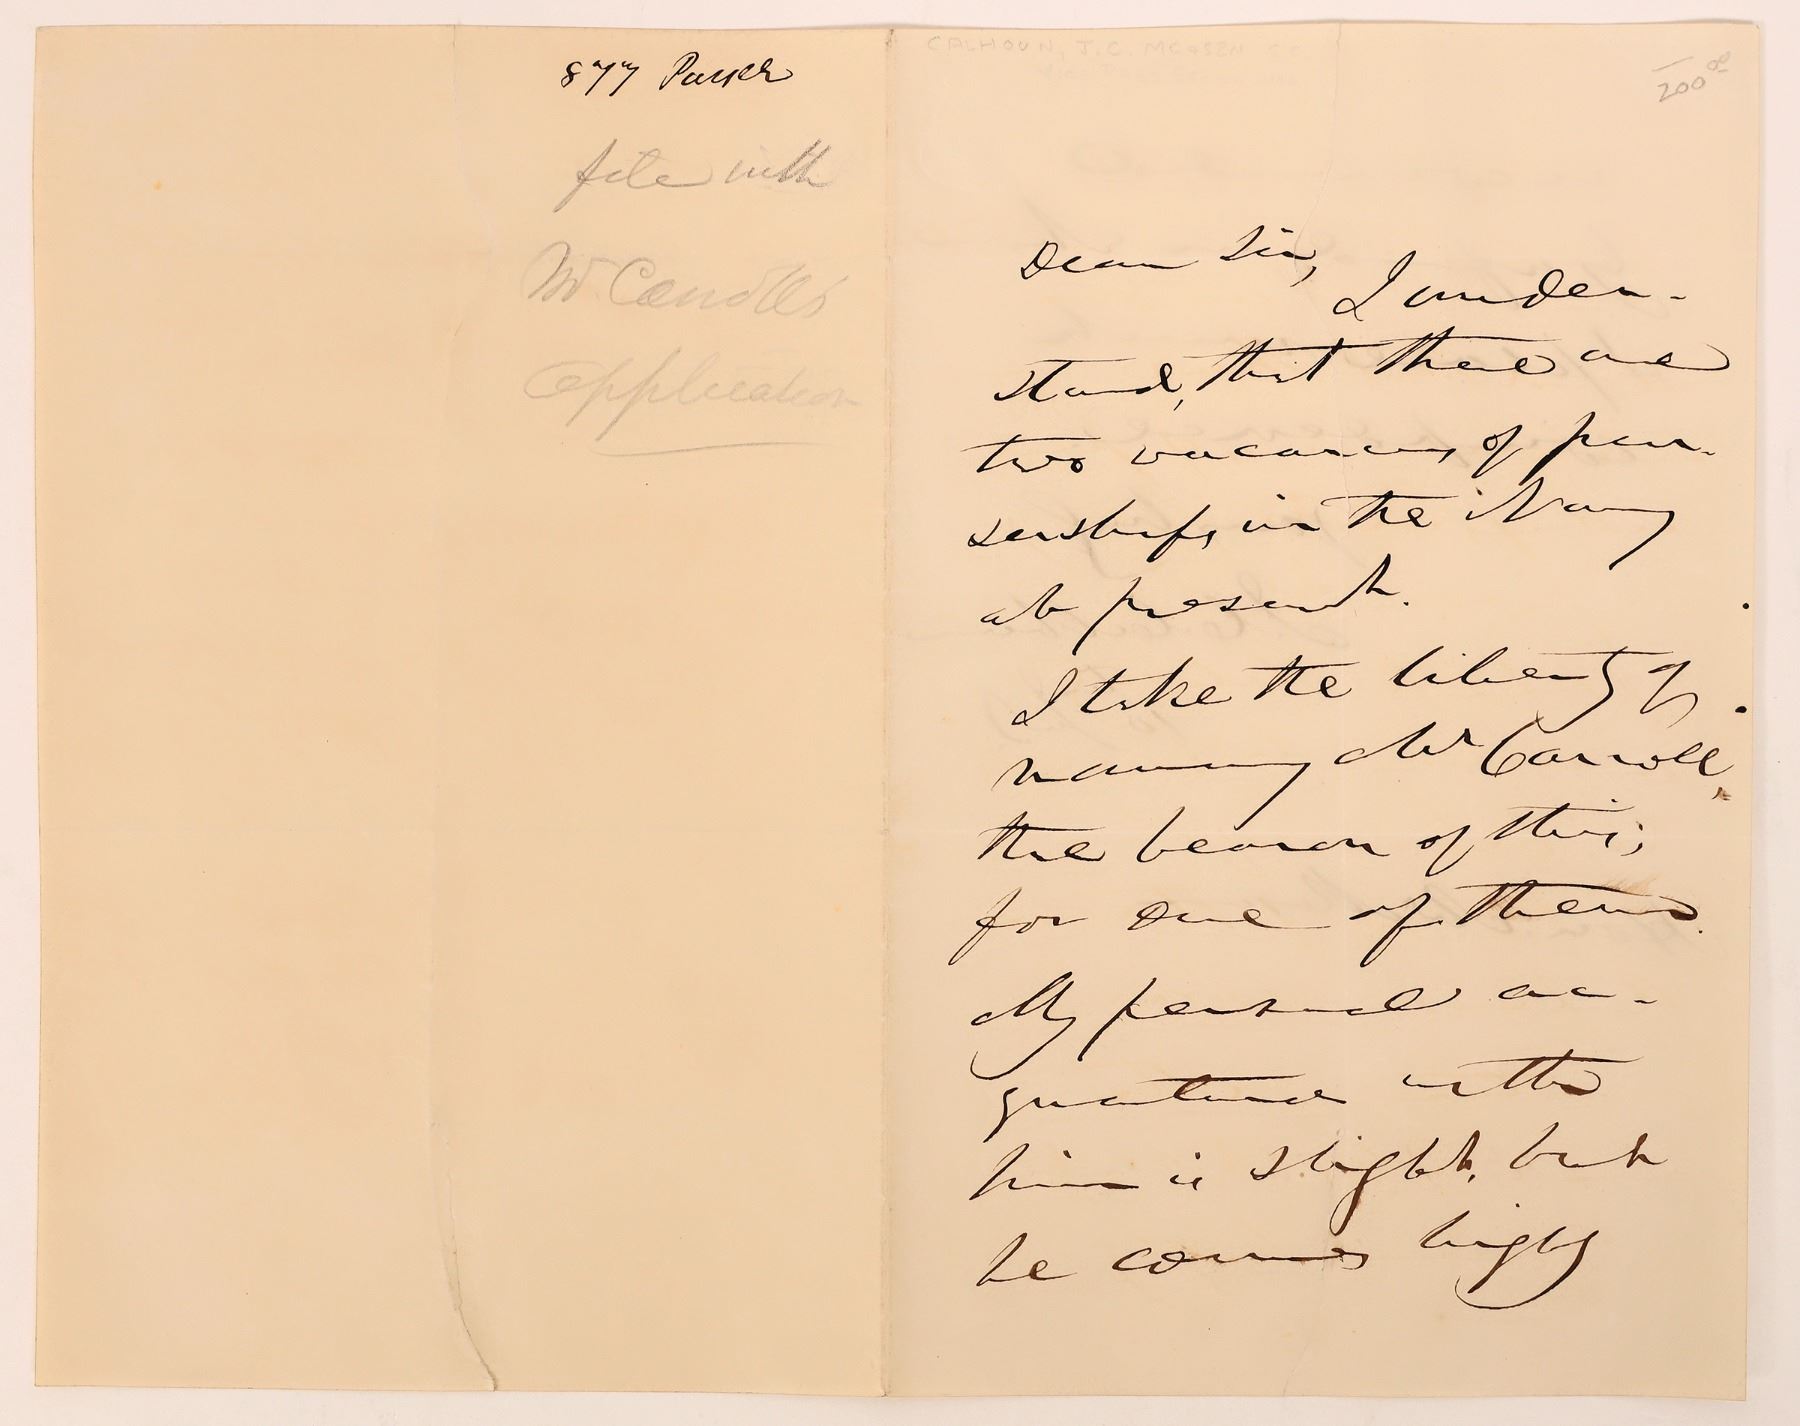 877 Parker
file with
Mr Carroll's
application
CALHOUN, J.C.
200 00
Dear Sir,
I under-
stand, that there are
two vacancies of pur-
serships, in the Navy
at present.
I take the liberty of
naming Mr Carroll,
the bearer of this,
for one of them.
My personal ac-
quaintance with
him is slight, but
he comes highly